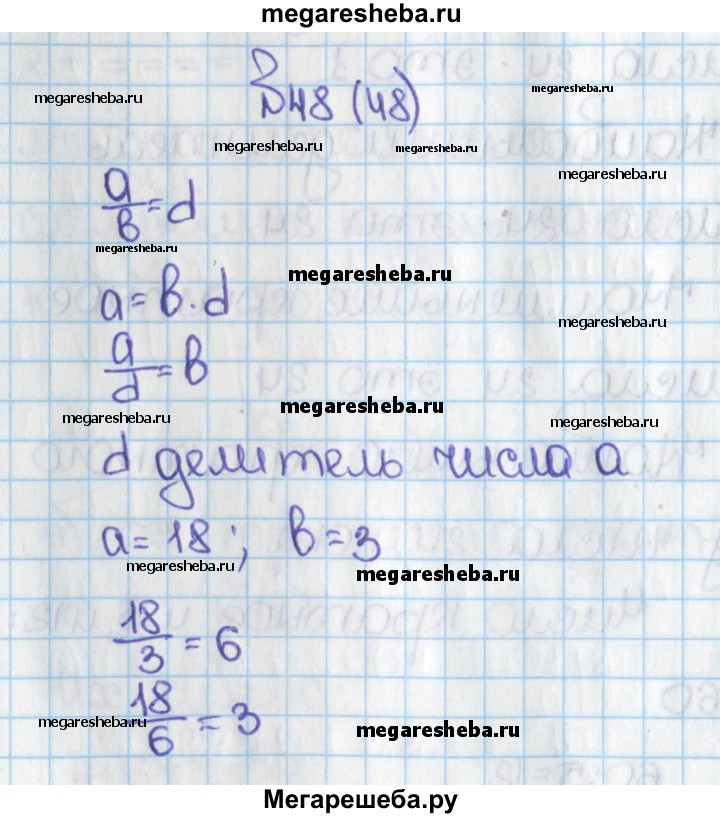 megaresheba.ru
megaresheba.ru
megaresheba.ru
№48 (48)
megaresheba.ru
megaresheba.ru
megaresheba.ru
a/b = d
megaresheba.ru
megaresheba.ru
a = b · d
megaresheba.ru
a/d = b
megaresheba.ru
megaresheba.ru
megaresheba.ru
d делитель числа a
a = 18 ; b = 3
megaresheba.ru
megaresheba.ru
18/3 = 6
18/6 = 3
megaresheba.ru
megaresheba.ru
Мегарешеба.ру